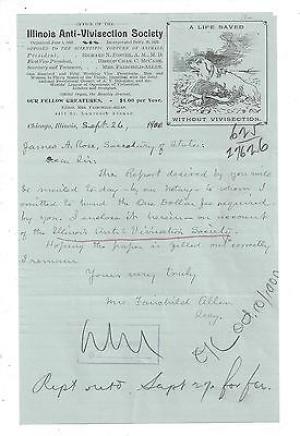 OFFICE OF THE
Illinois Anti-Vivisection Society
OPPOSED TO THE SCIENTIFIC TORTURE OF ANIMALS.
President, RICHARD N. FOSTER, A. M., M. D.
First Vice President, BISHOP CHAS. C. McCABE.
Secretary and Treasurer, MRS. FAIRCHILD-ALLEN.
OUR FELLOW CREATURES, $1.00 per Year.
A LIFE SAVED
WITHOUT VIVISECTION.
Chicago, Illinois, Sept. 26, 1900
625
27626
James A. Rose, Secretary of State:
Dear Sir:
The Report desired by you will
be mailed to-day - by our Notary - to whom I
omitted to hand the One Dollar fee required
by you. I enclose it herein - on account
of the Illinois Anti-Vivisection Society.
Hoping the paper is filled out correctly
I remain
Yours very truly
Mrs. Fairchild Allen
Secy.
OK Oct. 10/1900
Rept retd. Sept 27 for fee.